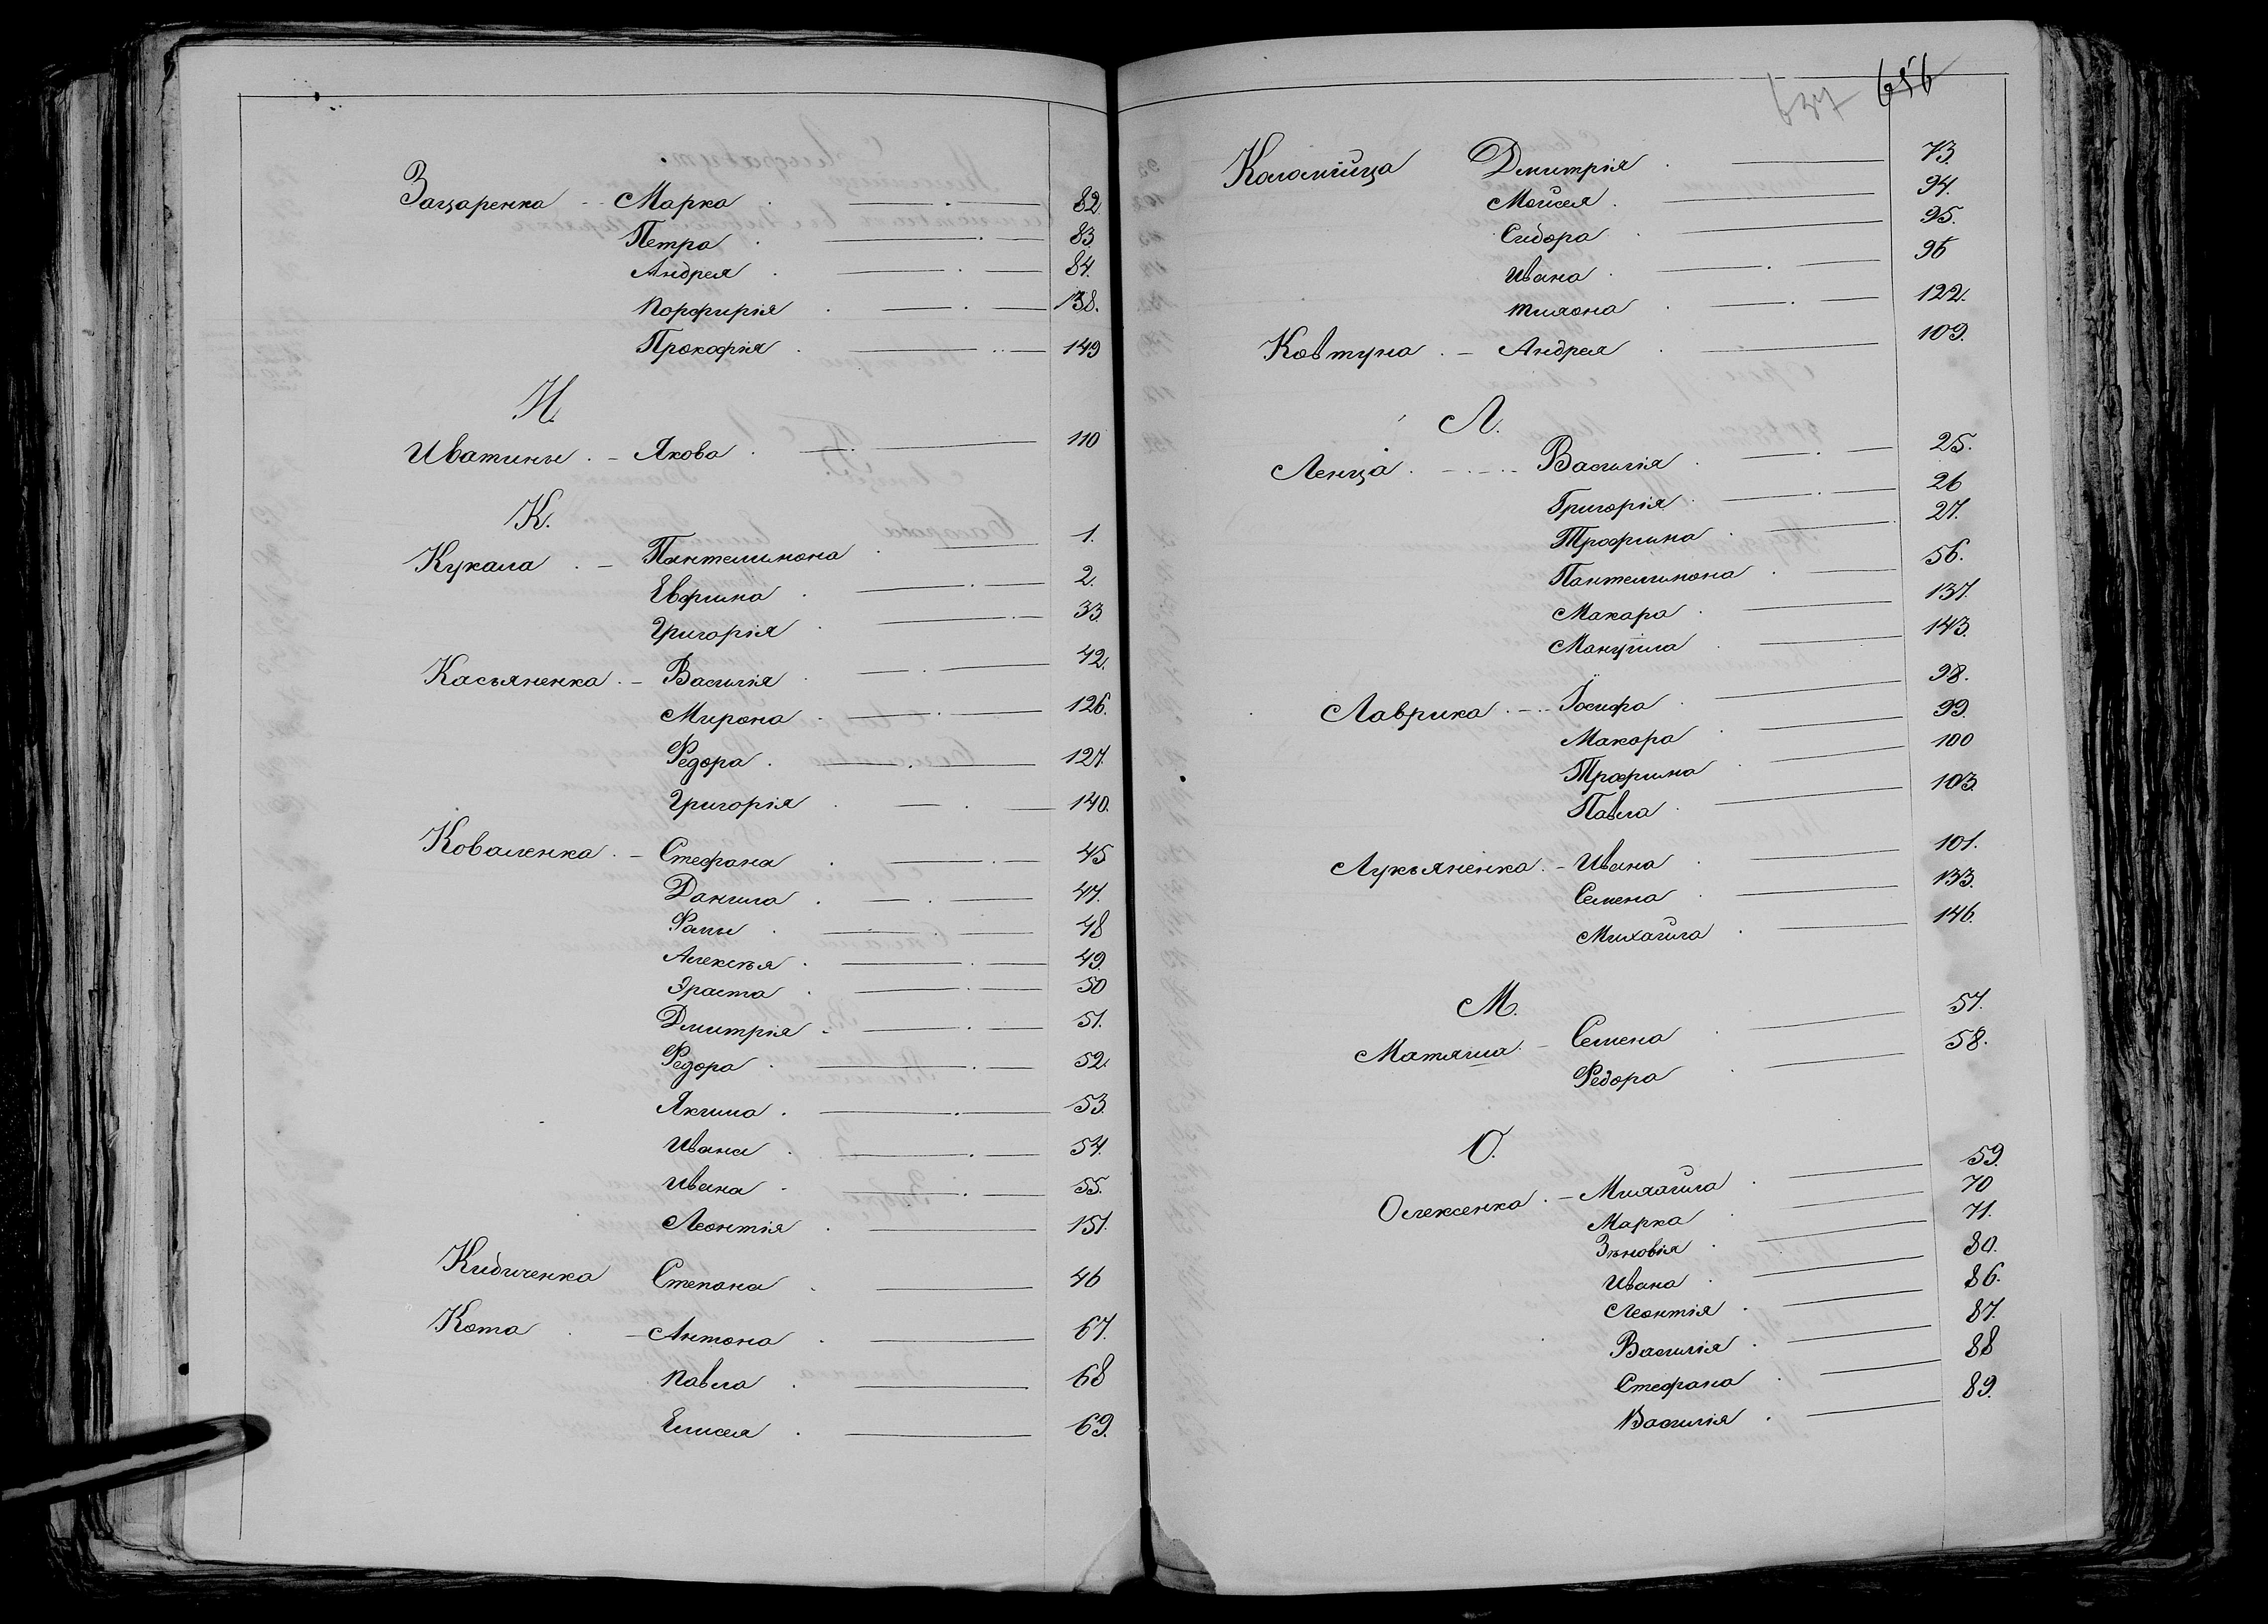 Зацаренка - Марка 82
Петра 83.
Андрея 84.
Порфирія 138.
Прокофія 149
И.
Иватины - Якова 110
К.
Кукала - Пантелимона 1.
Евфима 2.
Григорія 33.
Касьяненка - Василія 42.
Мирона 126.
Федора 127.
Григорія 140.
Коваленка - Стефана 45
Данила 47.
Фомы 48
Алексѣя 49.
Эраста 50
Дмитрія 51.
Федора 52.
Якима 53.
Ивана 54.
Ивана 55.
Леонтія 151.
Кидиченка Степана 46
Кота - Антона 67.
Павла 68
Елисея 69.
637 656
Коломійца Дмитрія 73.
Мойсея 94.
Сидора 95.
Ивана 96
Тихона 122.
Ковтуна - Андрея 109.
Л.
Ленца - Василія 25.
Григорія 26
Трофима 27.
Пантелимона 56.
Макара 137.
Мануила 143.
Лаврика - Іосифа 98.
Макара 99.
Трофима 100
Павла 103
Лукьяненка - Ивана 101.
Семена 133.
Михайла 146.
М.
Матяша - Семена 57.
Федора 58.
О.
Олексенка - Михайла 59.
Марка 70
Зѣновія 71.
Ивана 80.
Леонтія 86.
Василія 87.
Стефана 88
Василія 89.